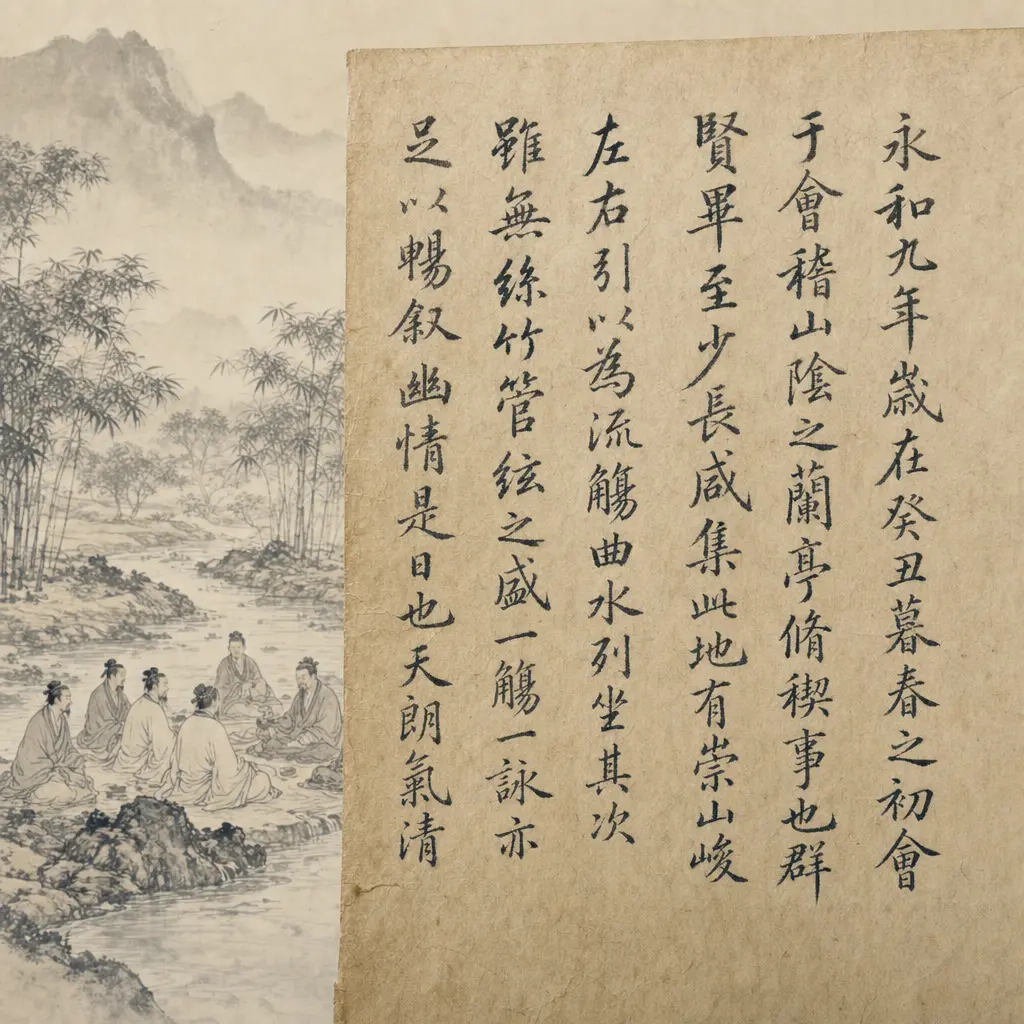 永和九年歲在癸丑暮春之初會
于會稽山陰之蘭亭脩稧事也群
賢畢至少長咸集此地有崇山峻
左右引以為流觴曲水列坐其次
雖無絲竹管絃之盛一觴一詠亦
足以暢叙幽情是日也天朗氣清